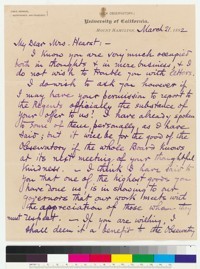 University of California,
March 21, 1892
My Dear Mrs. Hearst: —
I know you are very much occupied
both in thoughts & in mere business, & I
do not wish to trouble you with letters.
I do wish to ask you however if
I may have your permission to report to
the Regents officially the substance of
your offer to us? I have already spoken
to some of them personally, as I have
said; but it will be for the good of the
Observatory if the whole Board knows
at its next meeting of your thoughtful
kindness. — I think I have [told]
you that one of the highest goods you
have done us, is in showing to our
governors that our work meets with
the appreciation of those whom they
must respect. — If you are willing, I
shall deem it a benefit to the Observatory